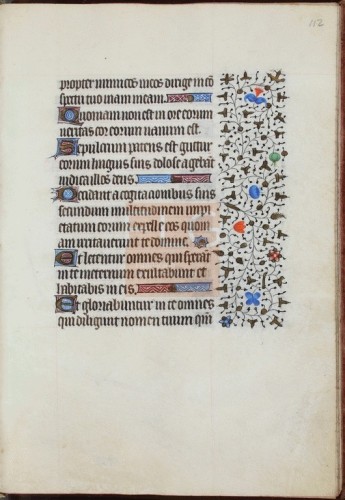 112
propter inimicos meos dirige in co
spectu tuo viam meam.
Quoniam non est in ore eorum
veritas cor eorum vanum est.
Sepulcrum patens est guttur
eorum linguis suis dolose agebāt
iudica illos deus.
Decidant a cogitacionibus suis
secundum multitudinem impi
etatum eorum expelle eos quoni
am irritaverunt te domine.
Et letentur omnes qui sperāt
in te in eternum exultabunt et
habitabis in eis.
Et gloriabuntur in te omnes
qui diligunt nomen tuum qm̄